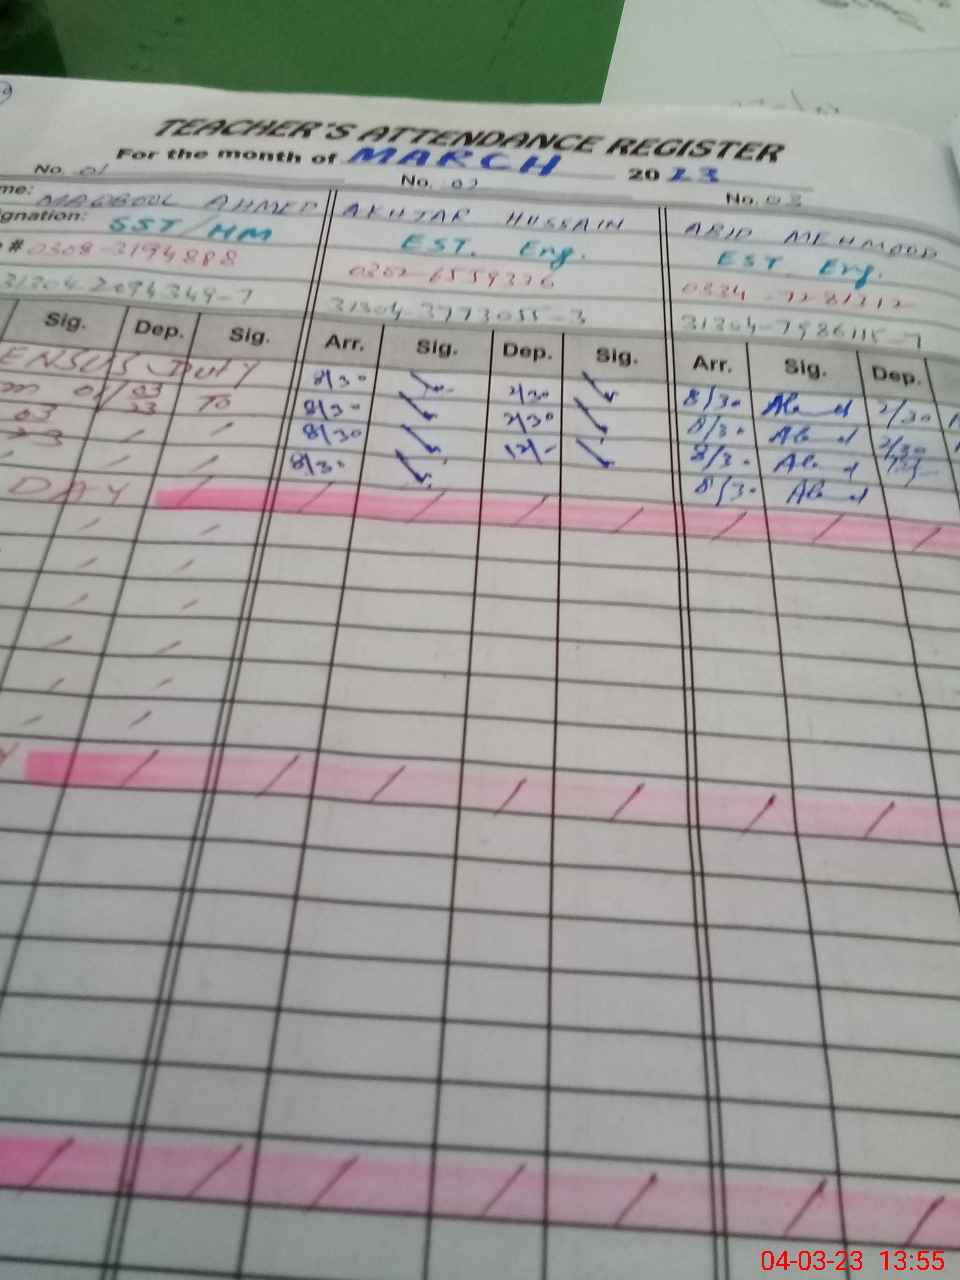 TEACHER'S ATTENDANCE REGISTER
For the month of MARCH 2023
No. 01 No. 02 No. 03
me: MAQBOOL AHMED AKHTAR HUSSAIN ABID MEHMOOD
ignation: SST/HM EST. Eng. EST Eng.
# 0308-3194888 0302-6559376 0334-7281312
31304-2094349-7 31304-3773055-3 31304-7986115-7
Sig. Dep. Sig. Arr. Sig. Dep. Sig. Arr. Sig. Dep.
ENSUS DUTY 8/30 2/30 8/30 2/30
m 01/03/23 To 8/30 2/30 8/30 2/30
03 8/30 12/- 8/30
23 8/30 8/30
DAY
04-03-23 13:55